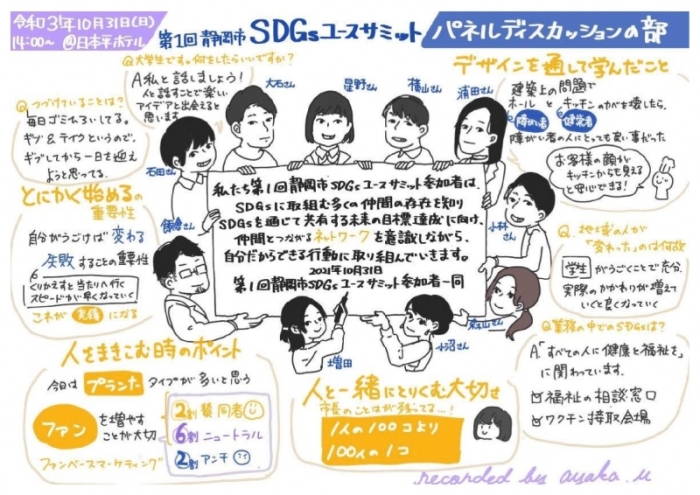 令和3年10月31日(日)
14:00〜 @日本平ホテル
第1回 静岡市 SDGsユースサミット
パネルディスカッションの部
Q大学生です。何をしたらいいですか?
A私と話しましょう!
人と話すことで楽しい
アイデアと出会えると
思います。
大石さん
星野さん
横山さん
浦田さん
デザインを通して学んだこと
建築上の問題で
ホールとキッチンのかべを壊したら、
障がい者
健常者
障がい者の人にとっても良い事だった
お客様の顔が
キッチンからも見える
と安心できる!
Q つづけていることは?
毎日ゴミひろいしてる。
ギブ&テイクというので、
ギブしてから一日を迎え
ようと思ってる。
石田さん
とにかく始めるの
重要性
自分がうごけば変わる
失敗することの重要性
くりかえすと当たりへ行く
スピードが早くなっていく
これが実績になる
飯倉さん
私たち第1回静岡市SDGsユースサミット参加者は、
SDGsに取組む多くの仲間の存在を知り
SDGsを通じて共有する未来の目標達成に向け、
仲間とつながるネットワークを意識しながら、
自分だからできる行動に取り組んでいきます。
2021年10月31日
第1回静岡市SDGsユースサミット参加者一同
小林さん
Q. 地域の人が
「変わった」のは何故
学生がうごくことで充分
実際のかかわりが増えて
いくと良くなっていく
森山さん
小沼さん
増田
Q業務の中でのSDGsは?
A「すべての人に健康と福祉を」
に関わっています。
福祉の相談窓口
ワクチン接取会場
人をまきこむ時のポイント
今日はプランナータイプが多いと思う
ファンを増やす
ことが大切
ファンベースマーケティング
2割 賛同者
6割 ニュートラル
2割 アンチ
人と一緒にとりくむ大切さ
市長のことばが残ってる…!
1人の100コより
100人の1コ
recorded by ayaka.u